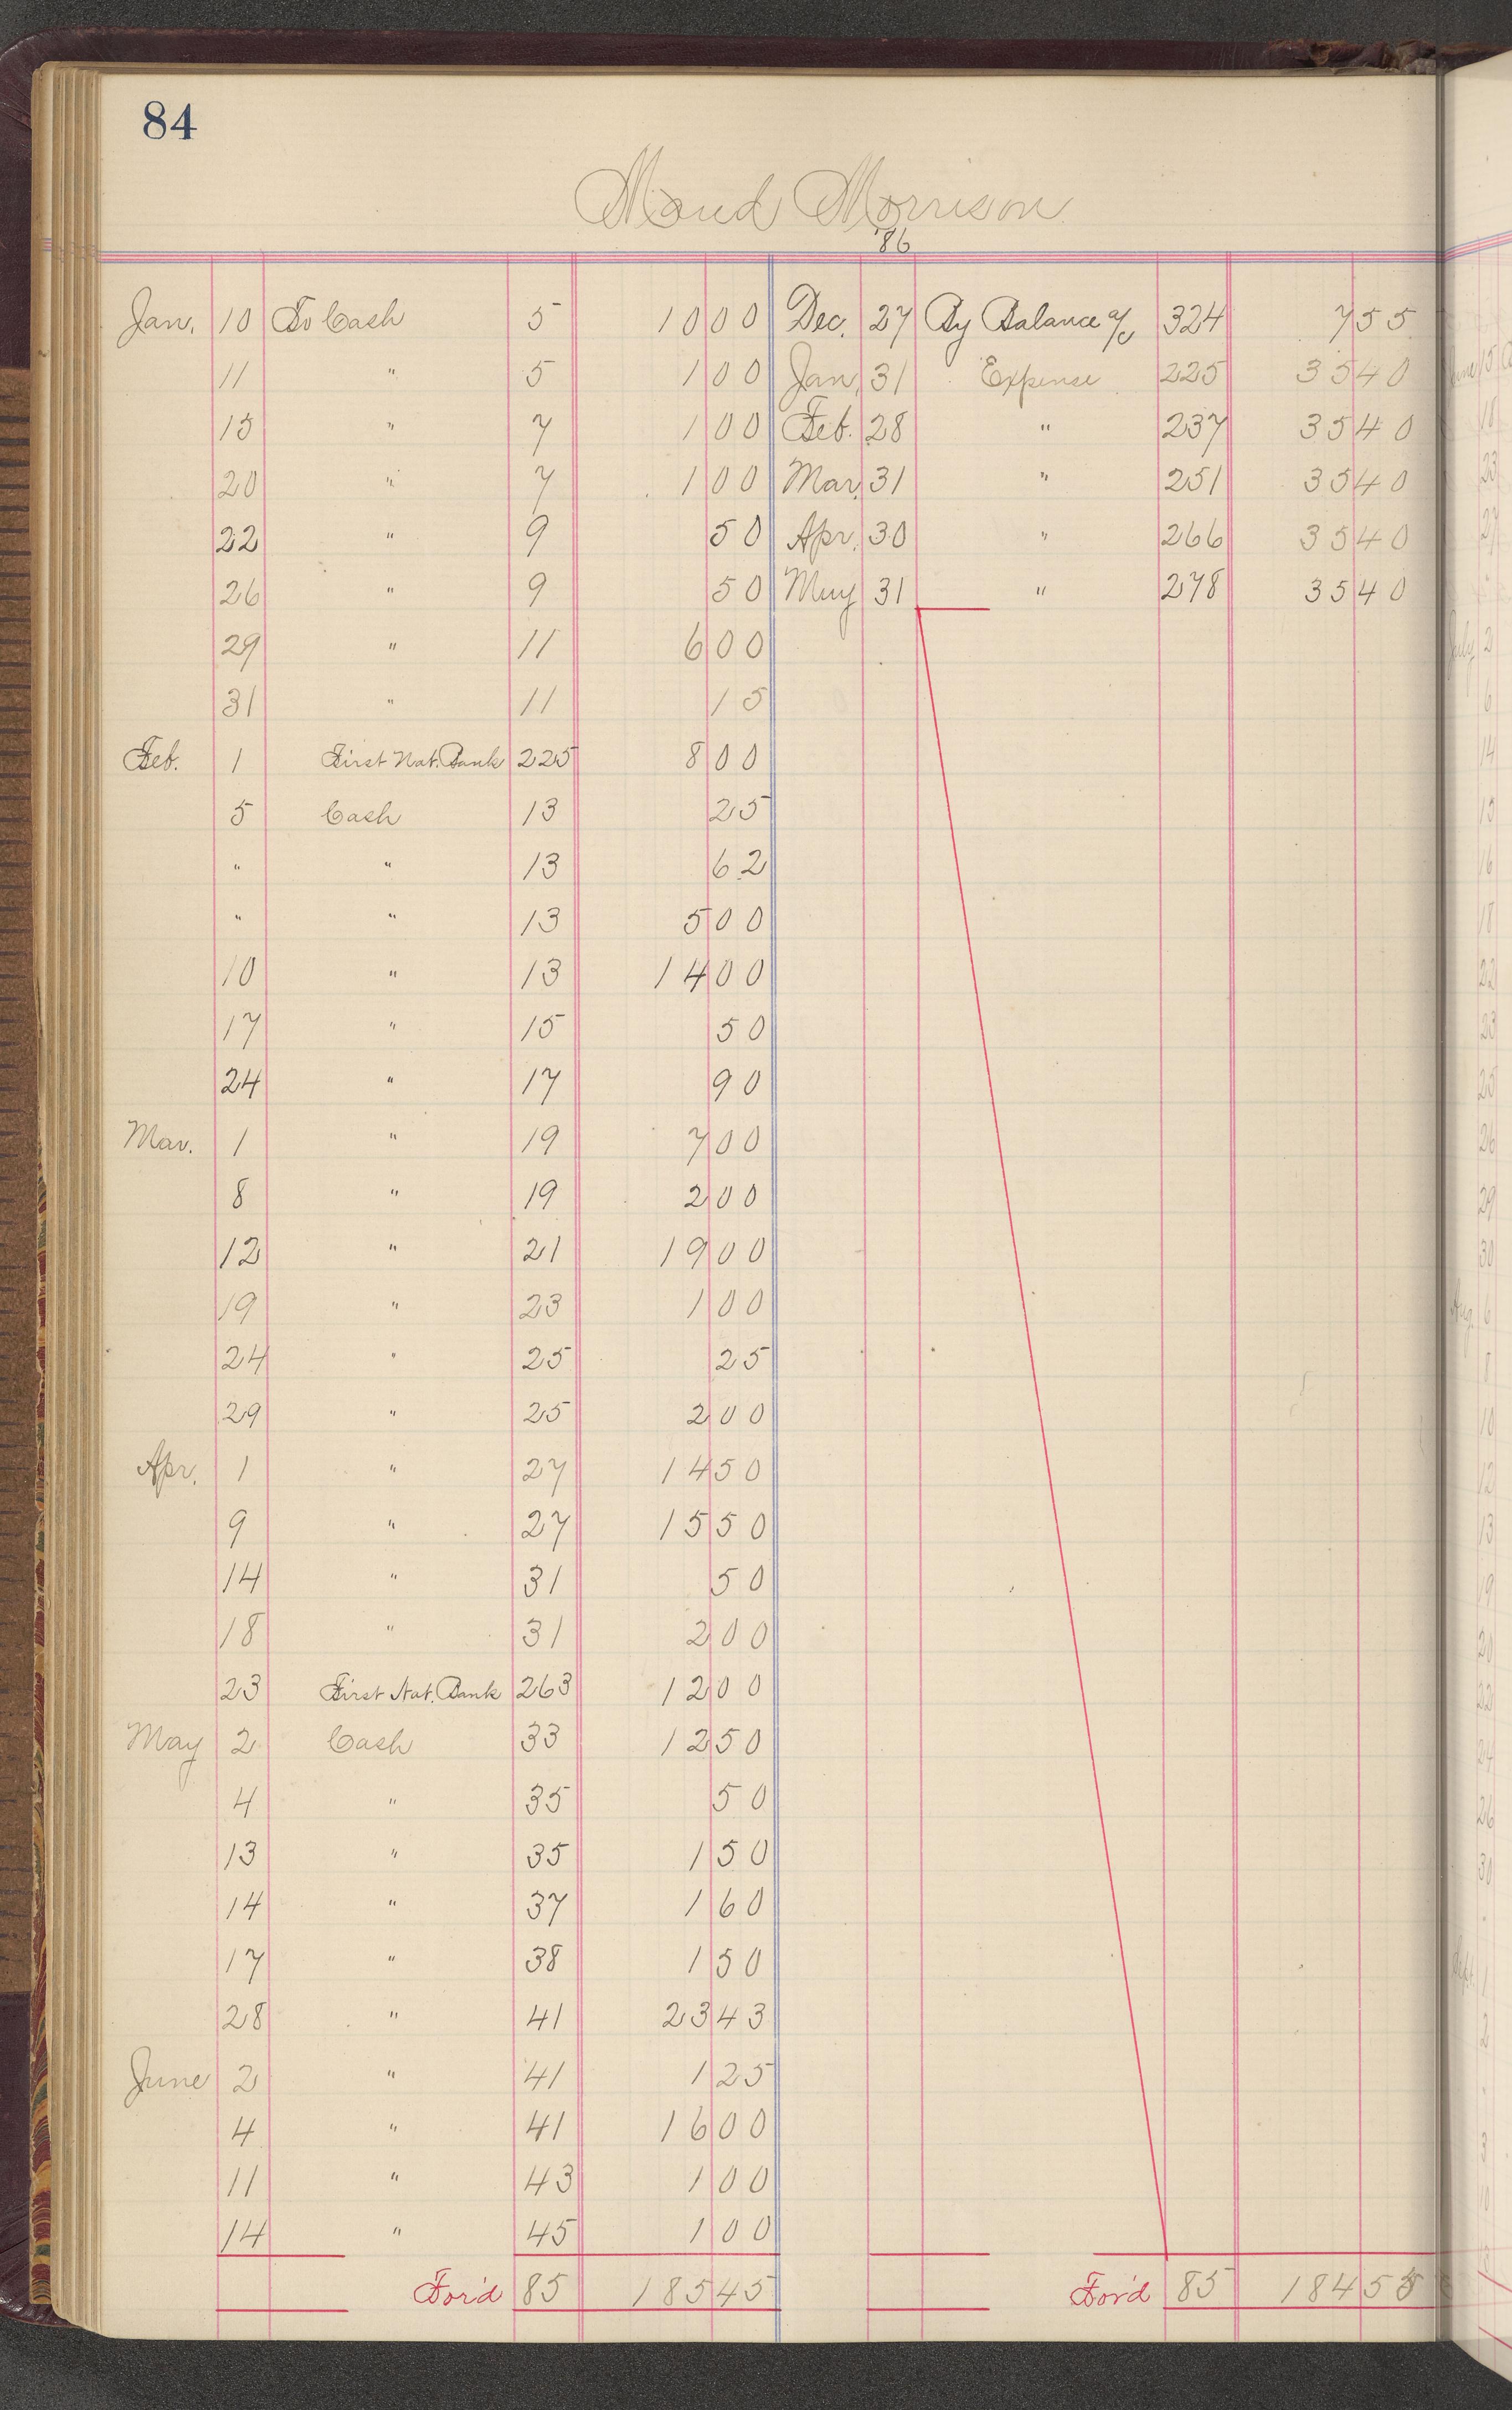 84
Maud Morrison
'86
Jan. 10 To Cash 5 10 00 Dec. 27 By Balance a/c 324 7 55
11 " 5 1 00 Jan. 31 Expense 225 35 40
15 " 7 1 00 Feb. 28 " 237 35 40
20 " 7 1 00 Mar. 31 " 251 35 40
22 " 9 50 Apr. 30 " 266 35 40
26 " 9 50 May 31 " 278 35 40
29 " 11 6 00
31 " 11 15
Feb. 1 First Nat. Bank 225 8 00
5 Cash 13 25
" " 13 62
" " 13 5 00
10 " 13 14 00
17 " 15 50
24 " 17 90
Mar. 1 " 19 7 00
8 " 19 2 00
12 " 21 19 00
19 " 23 1 00
24 " 25 25
29 " 25 2 00
Apr. 1 " 27 14 50
9 " 27 15 50
14 " 31 50
18 " 31 2 00
23 First Nat. Bank 263 12 00
May 2 Cash 33 12 50
4 " 35 50
13 " 35 1 50
14 " 37 1 60
17 " 38 1 50
28 " 41 23 43
June 2 " 41 1 25
4 " 41 16 00
11 " 43 1 00
14 " 45 1 00
For'd 85 185 45 For'd 85 184 55
June 15
18
23
27
July 2
6
14
15
16
18
22
23
25
26
29
30
Aug. 6
8
10
12
13
19
20
22
24
26
30
Sept. 1
2
"
3
10